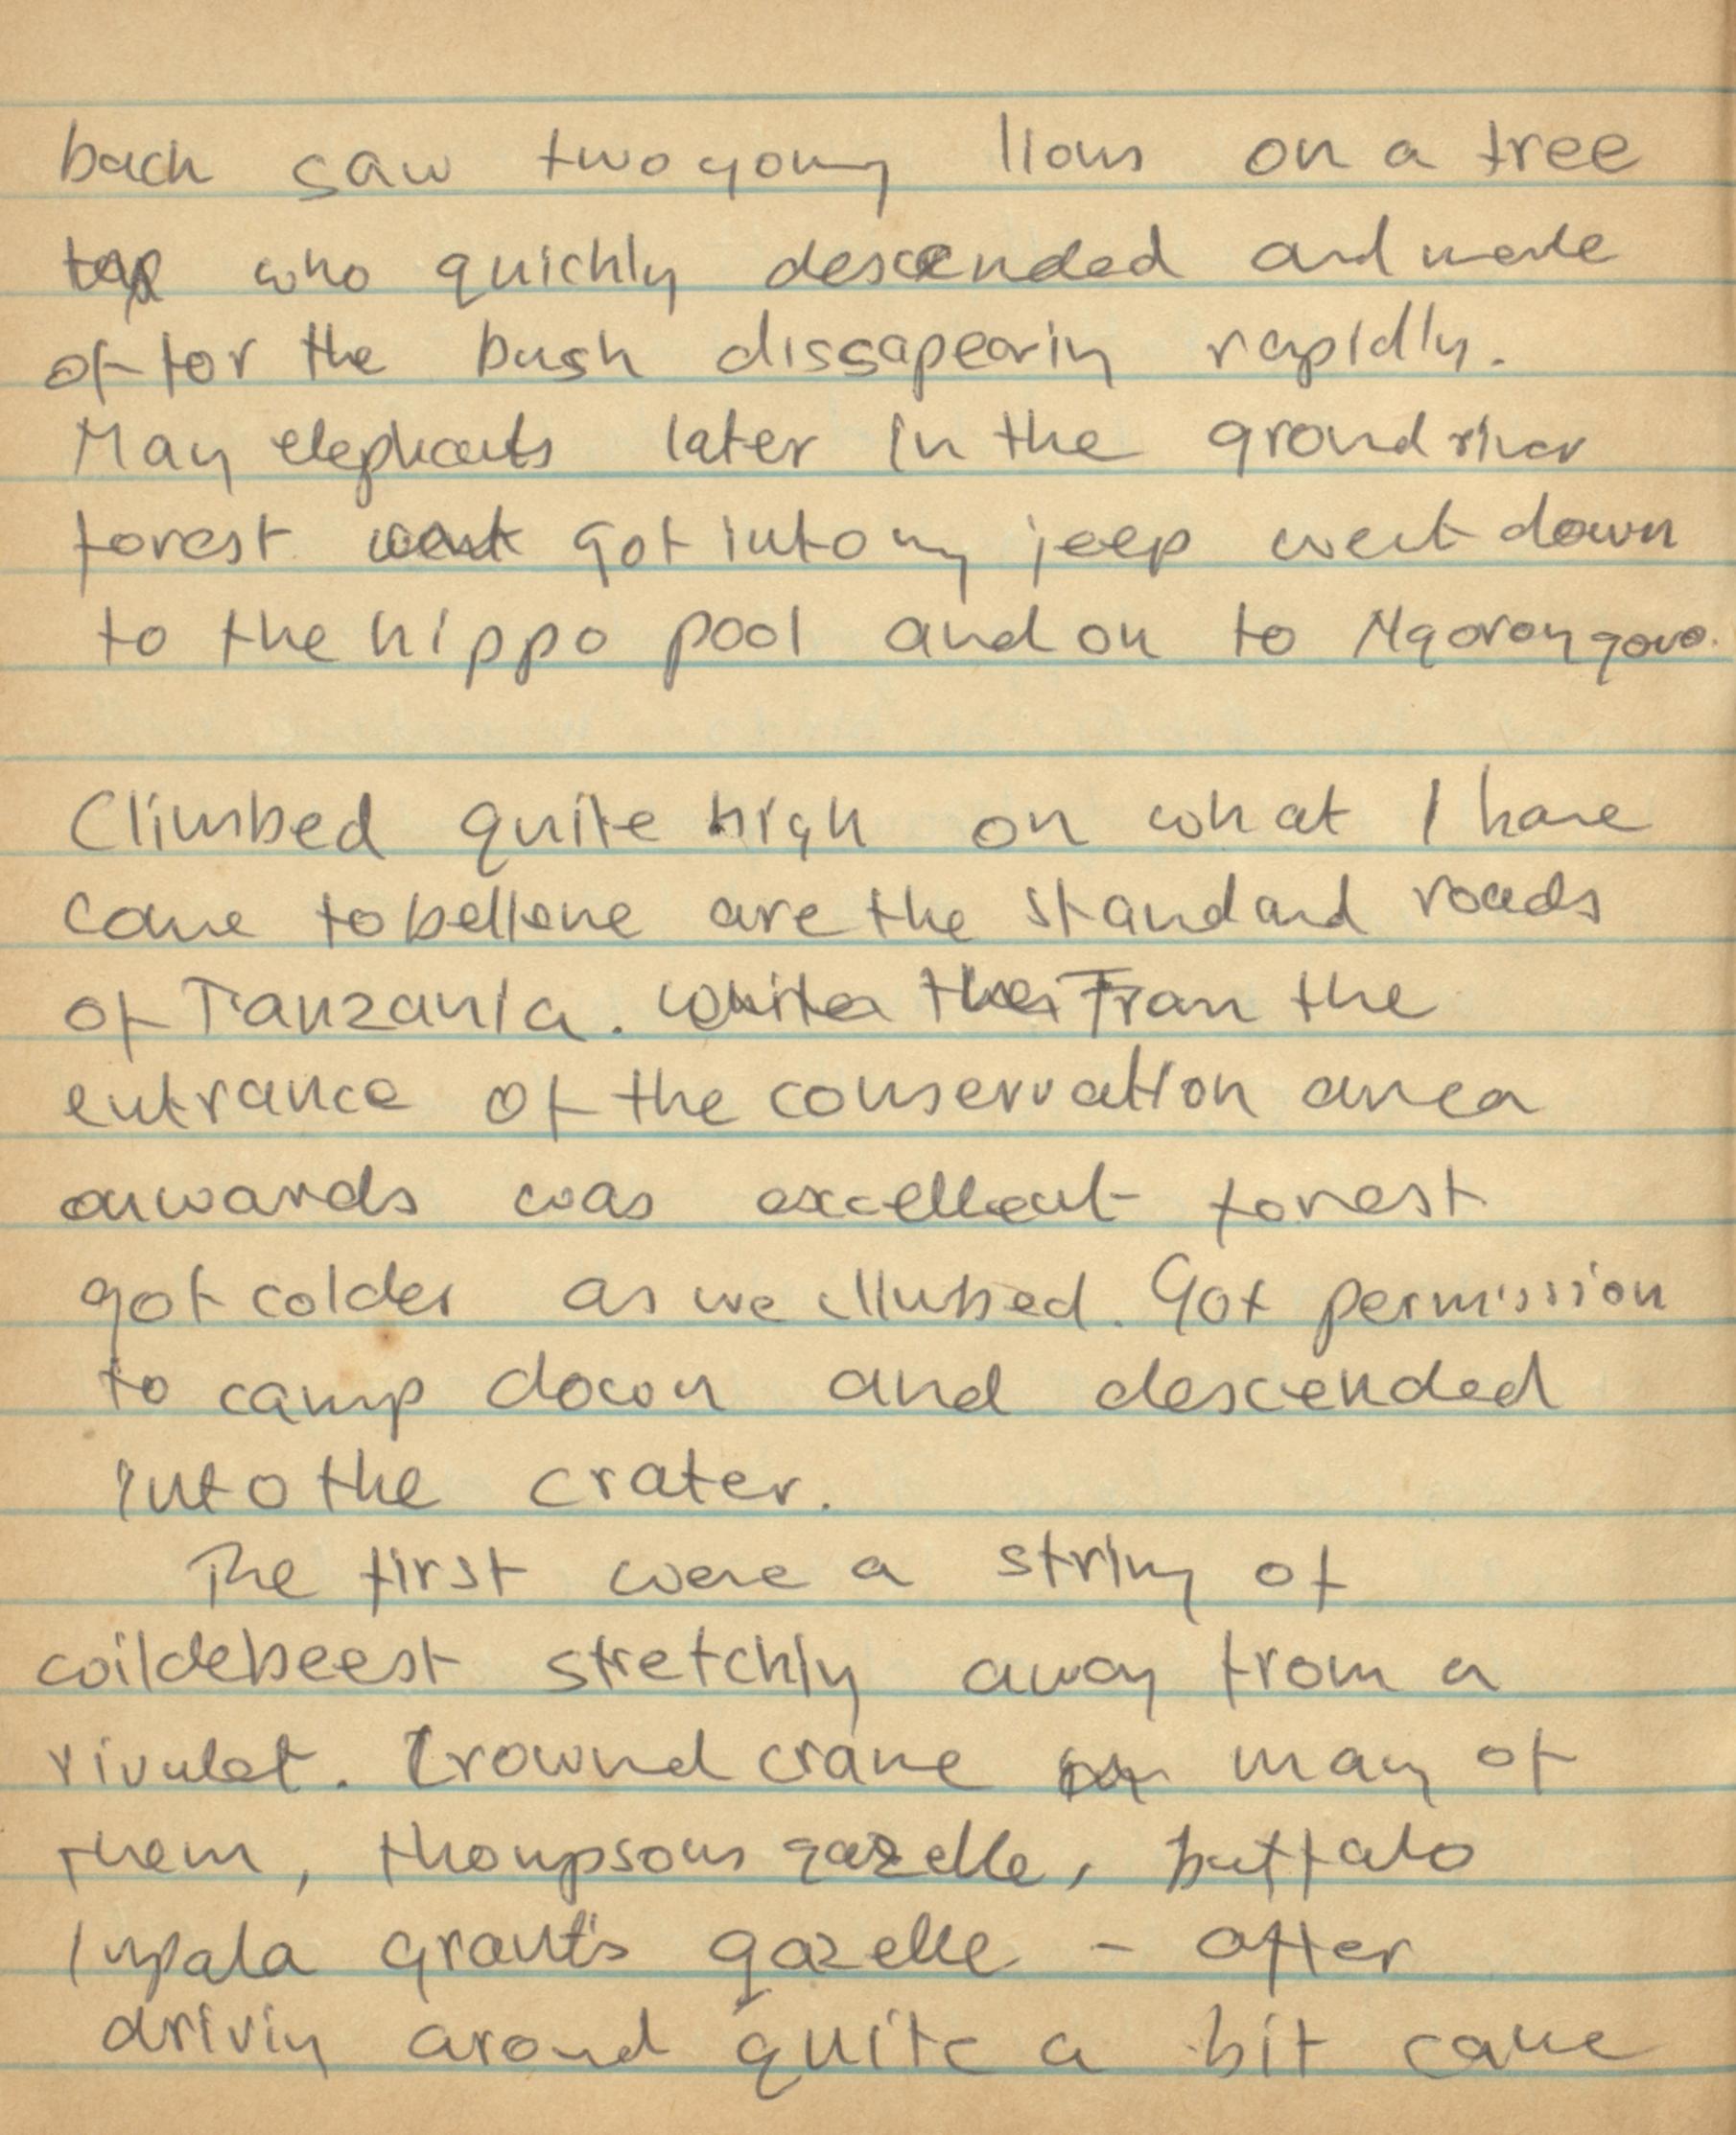 back saw two young lions on a tree
top who quickly descended and made
of for the bush dissapearing rapidly.
Many elephants later in the ground river
forest went got into my jeep went down
to the hippo pool and on to Ngorongoro.
Climbed quite high on what I have
come to believe are the standard roads
of Tanzania. From the
entrance of the conservation area
onwards was excellent forest
got colder as we climbed. Got permission
to camp down and descended
into the crater.
The first were a string of
wildebeest stretching away from a
rivulet. Crownd crane many of
them, thompsons gazelle, buffalo
Impala grant's gazelle - after
driving around quite a bit came